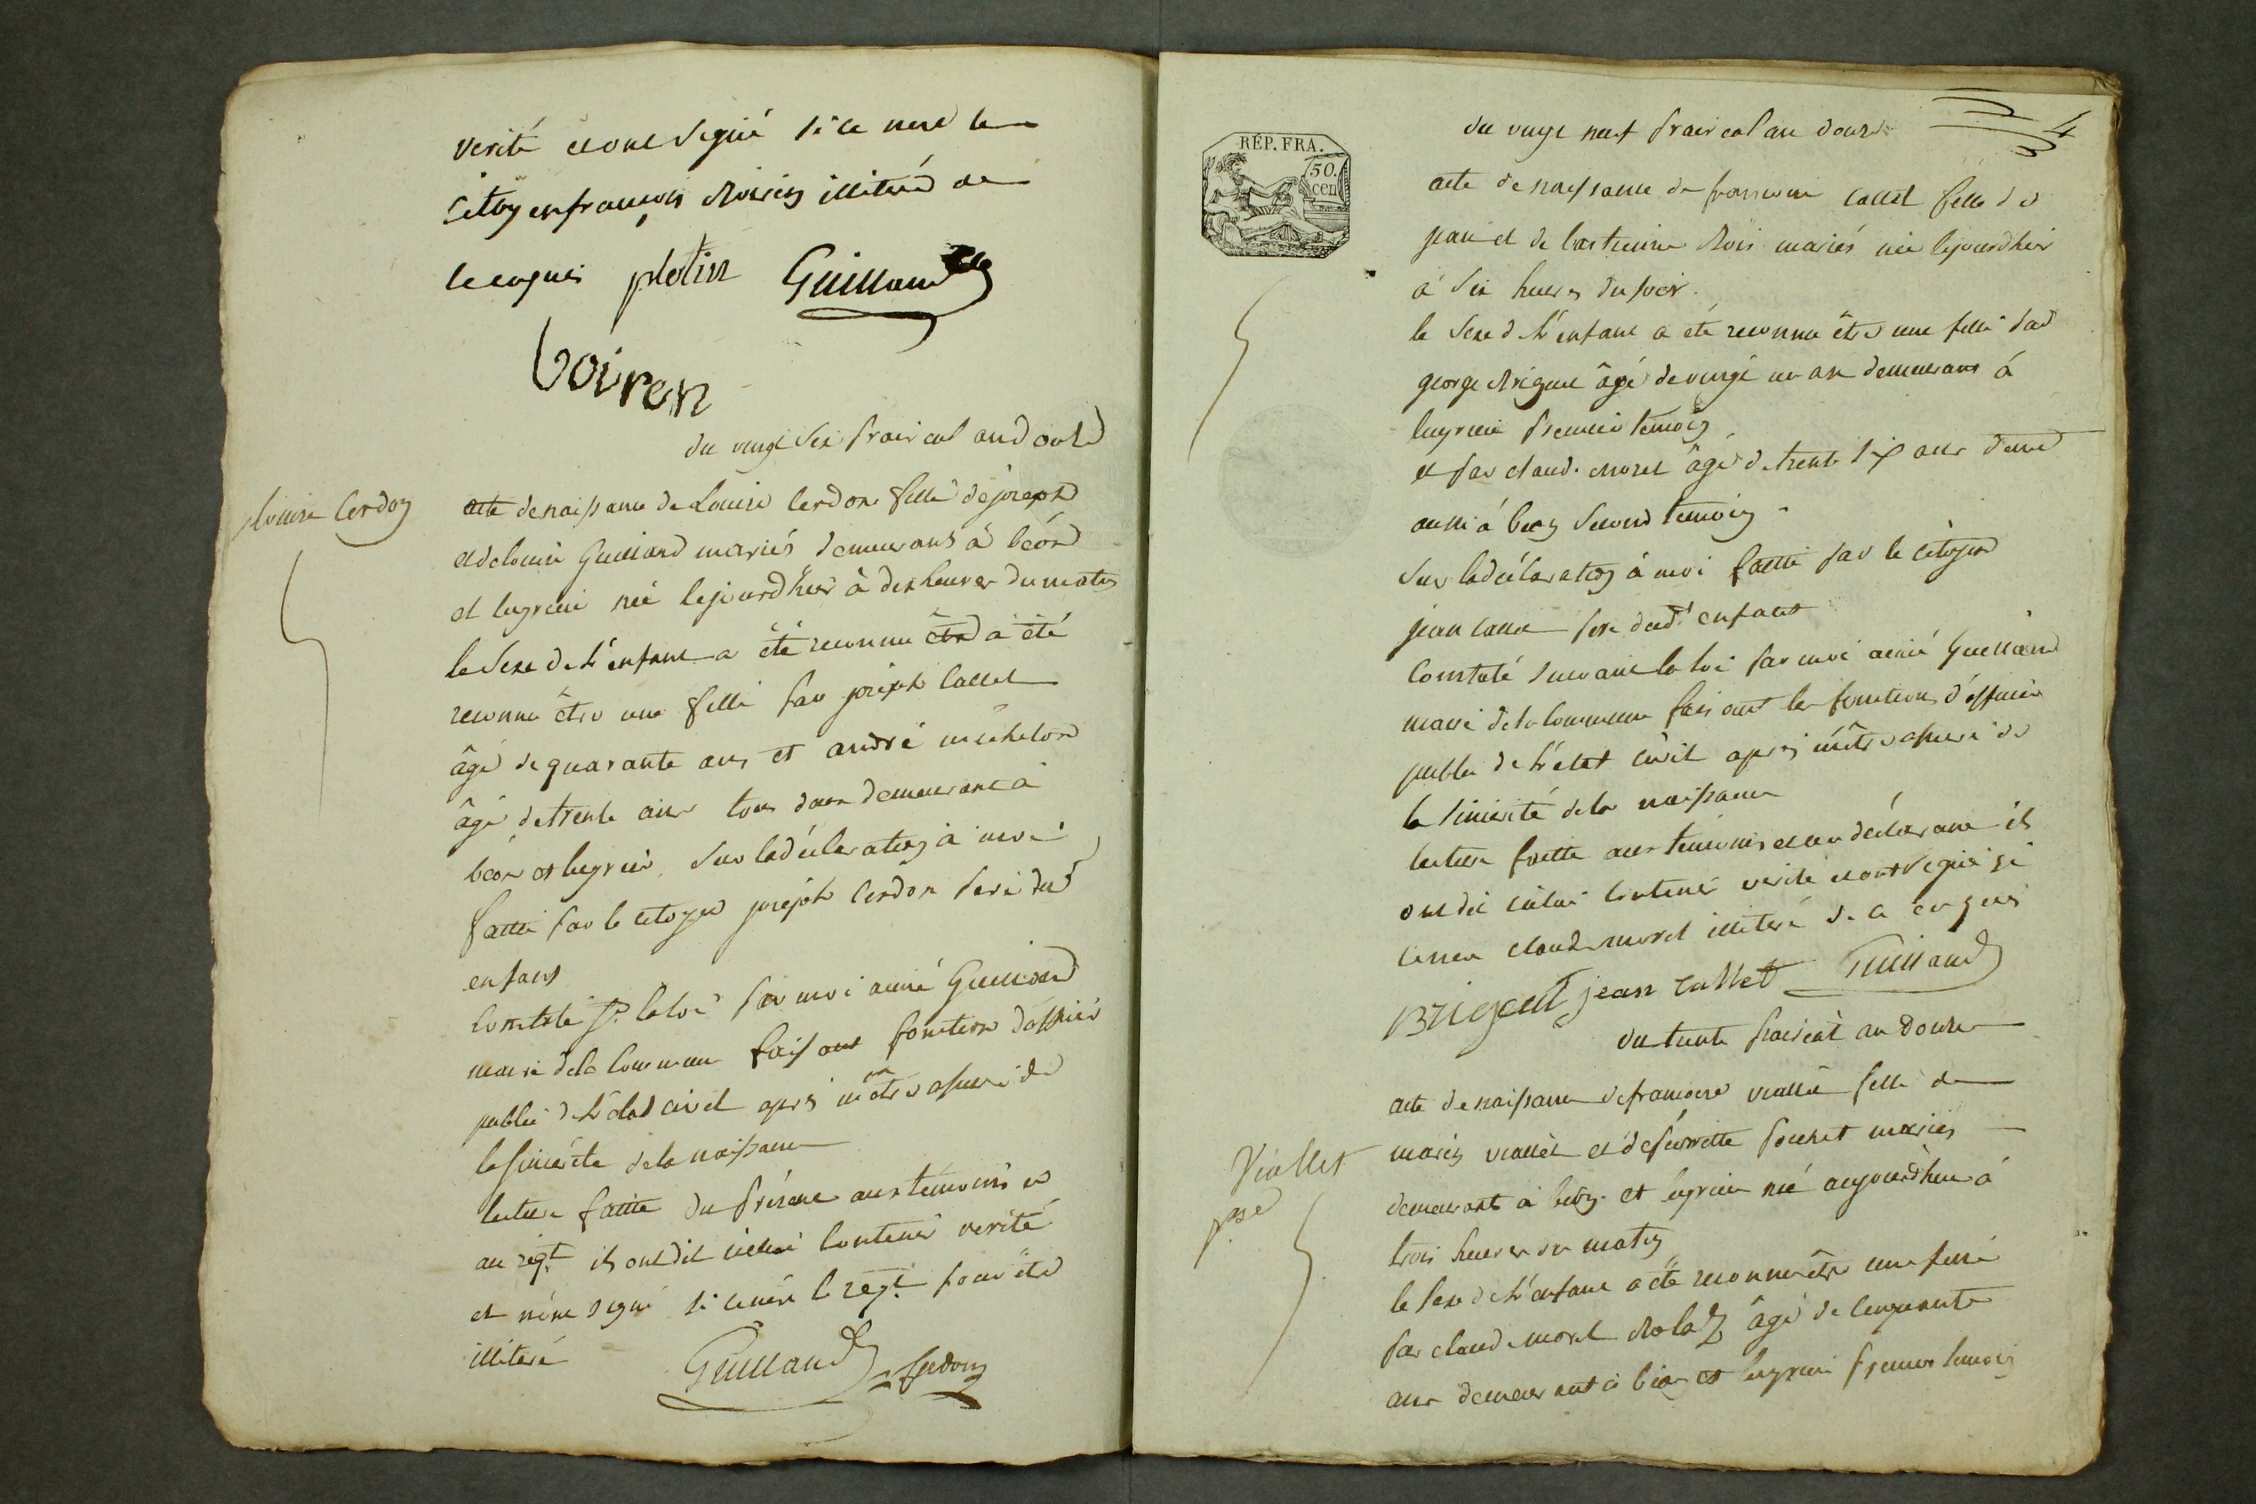 verité et ont signé si ce nest le
Citoyen françois Moirin illiteré de
ce enquis plotin Guilland
Voiren
du vingt six prairial an douze
Louise Cerdon
acte de naissance de Louise Cerdon fille de joseph
et de louise Guilland mariés demeurants à béon
et luyrieu née le jourdhui à dix heures du matin
le sexe de l'enfant a été reconnu être a été
reconnu être une fille par joseph Callet
âgé de quarante ans et andré michelon
âgé de trente ans tous deux demeurant à
béon et luyrieu. Sur la déclaration à moi
faitte par le citoyen joseph Cerdon pere du
enfant
Constaté st. la loi par moi aimé Guilland
maire de la Commune faisant fonction d'officier
public de l'état civil après m'être assuré de
la sincérité de la naissance
lecture faitte du présent aux temoins et
au réqt. ils ont dit icelui contenir verité
et n'ont signé si ce n'est le réqt. pour être
illiteré
Guilland Cerdon
RÉP. FRA.
50.
cen
4
du vingt neuf prairial an douze
acte de naissance de françoise Callet fille de
jean et de Mois mariés née le jourdhui
à six heures du soir.
le sexe de l'enfant a été reconnu être une fille par
george Brigand âgé de vingt un an demeurant à
luyrieu premier temoin
et par claude Morel âgé de trente six ans demt
aussi à béon second temoin.
Sur la déclaration à moi faitte par le citoyen
jean Callet pere dudt. enfant
Constaté suivant la loi par moi aimé Guilland
maire de la Commune faisant les fonctions d'officier
public de l'état civil après m'être assuré de
la sincérité de la naissance
lecture faitte aux temoins et au déclarant ils
ont dit icelui contenir verité et ont signé si
ce n'est claude morel illiteré de ce enquis
Brigand jean Callet Guilland
du trente prairial an douze
Viallet
acte de naissance de françoise viallet fille de
marin viallet et de pierrette mariés
demeurant à béon et luyrieu né aujourdhui à
trois heures du matin
le sexe de l'enfant a été reconnu être une fille
par claude morel Molaz âgé de cinquante
ans demeurant à béon et luyrieu premier temoin